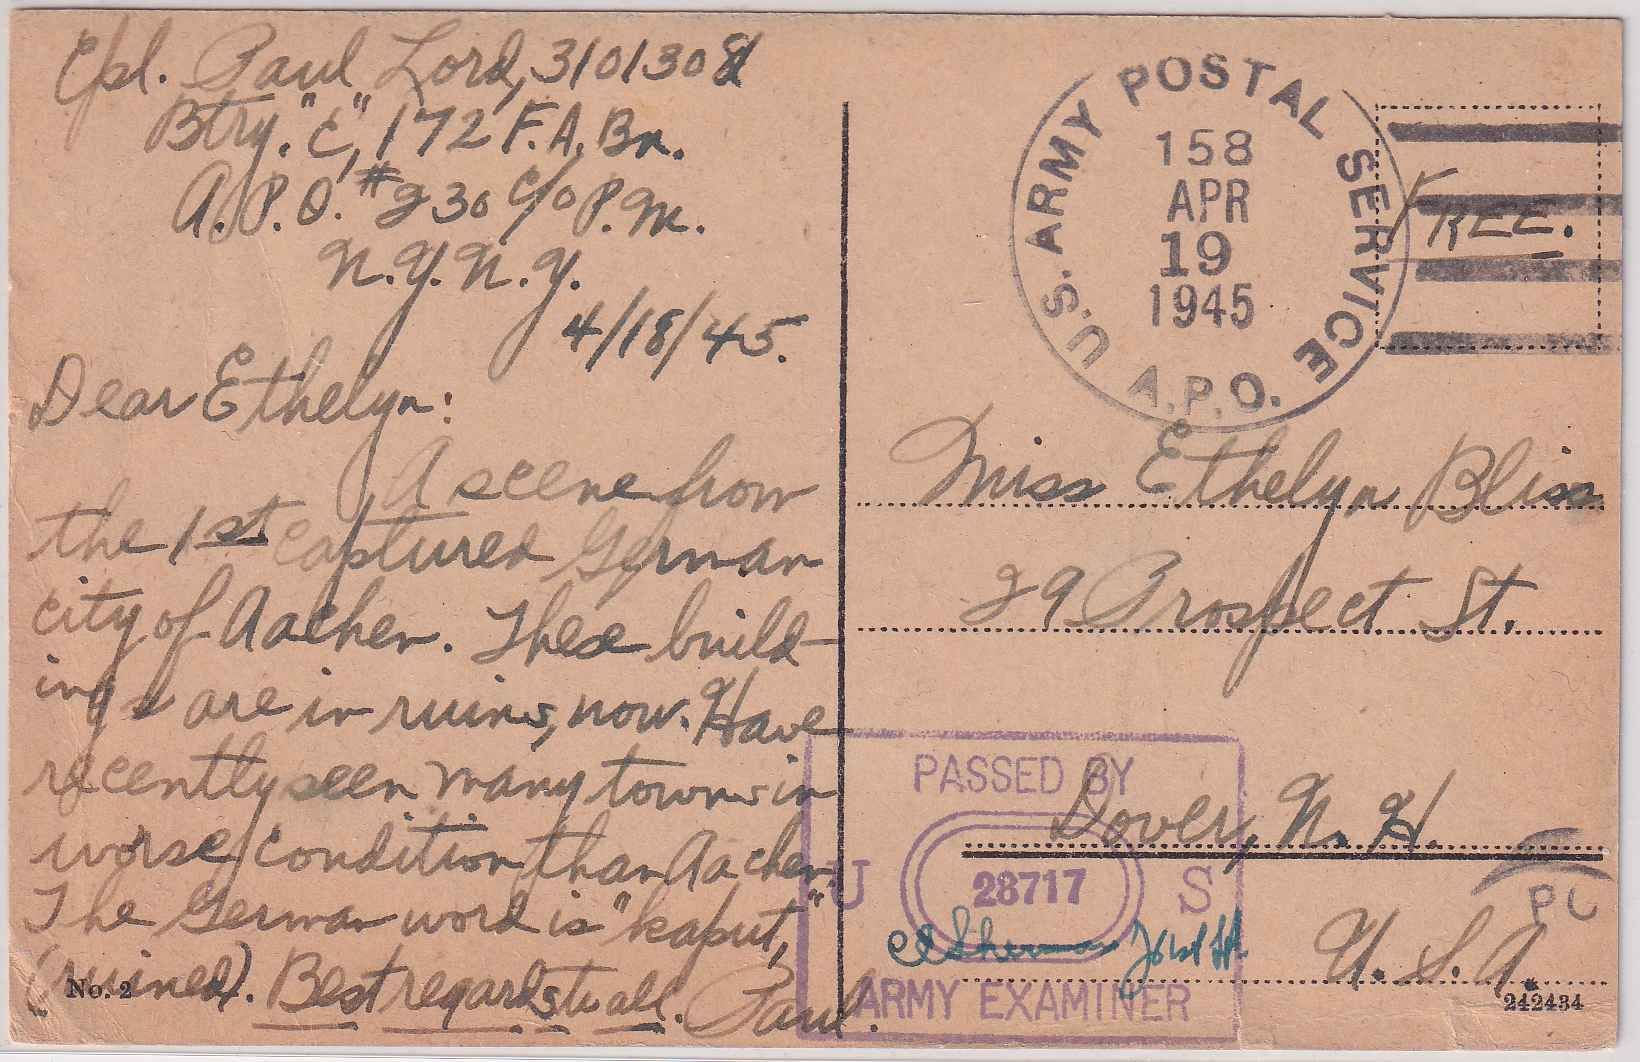 Cpl. Paul Lord, 31013081
Btry. "C", 172 F.A. Bn.
A.P.O. #230 c/o P.M.
N.Y. N.Y.
4/18/45.
Dear Ethelyn:
A scene from
the 1st captured German
city of Aachen. These build-
ings are in ruins, now. Have
recently seen many towns in
worse condition than Aachen.
The German word is "kaput,"
(ruined). Best regards to all. Paul.
No. 2
U.S. ARMY POSTAL SERVICE
158
APR
19
1945
A.P.O.
FREE.
Miss Ethelyn Bliss
29 Prospect St.
Dover, N. H.
U. S. A.
PASSED BY
U 28717 S
ARMY EXAMINER
PC
242434